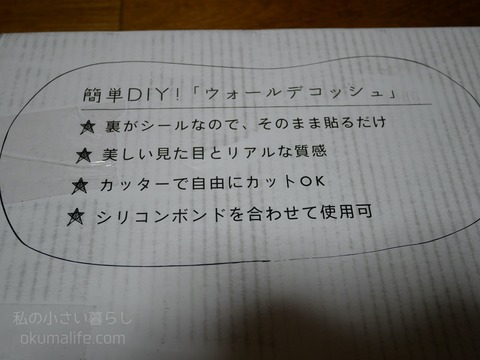 簡単DIY!「ウォールデコッシュ」
★ 裏がシールなので、そのまま貼るだけ
★ 美しい見た目とリアルな質感
★ カッターで自由にカットOK
★ シリコンボンドを合わせて使用可
私の小さい暮らし
okumalife.com